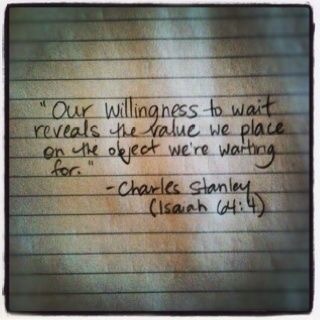 "Our willingness to wait
reveals the value we place
on the object we're waiting
for."
- Charles Stanley
(Isaiah 64:4)